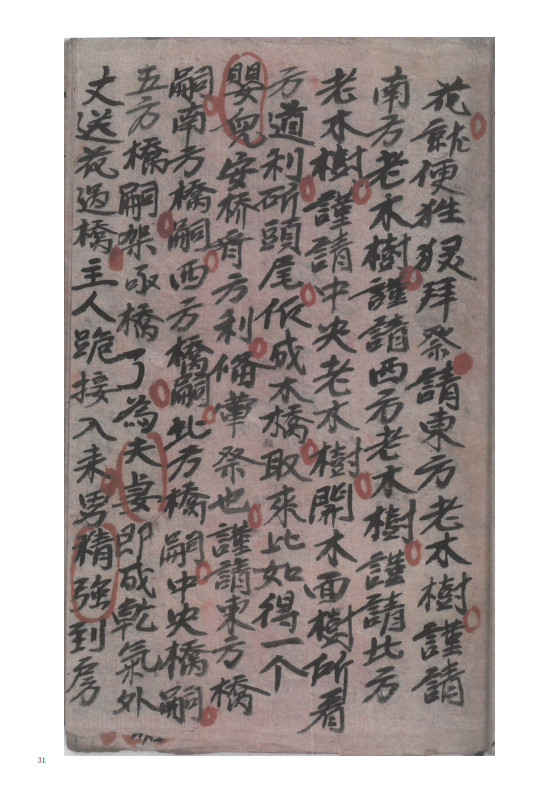 花就便牲猳拜祭請東方老木樹謹請
南方老木樹謹請西方老木樹謹請北方
老木樹謹請中央老木樹開木面樹所看
方道利斫頭尾伩成木橋取來比如得一个
嬰兒安桥有方利脩犖祭也謹請東方橋
嗣南方橋嗣西方橋嗣北方橋嗣中央橋嗣
五方橋嗣架成橋了為夫妻即成乾氣外
丈送花過橋主人跪接入来男精強到房
31